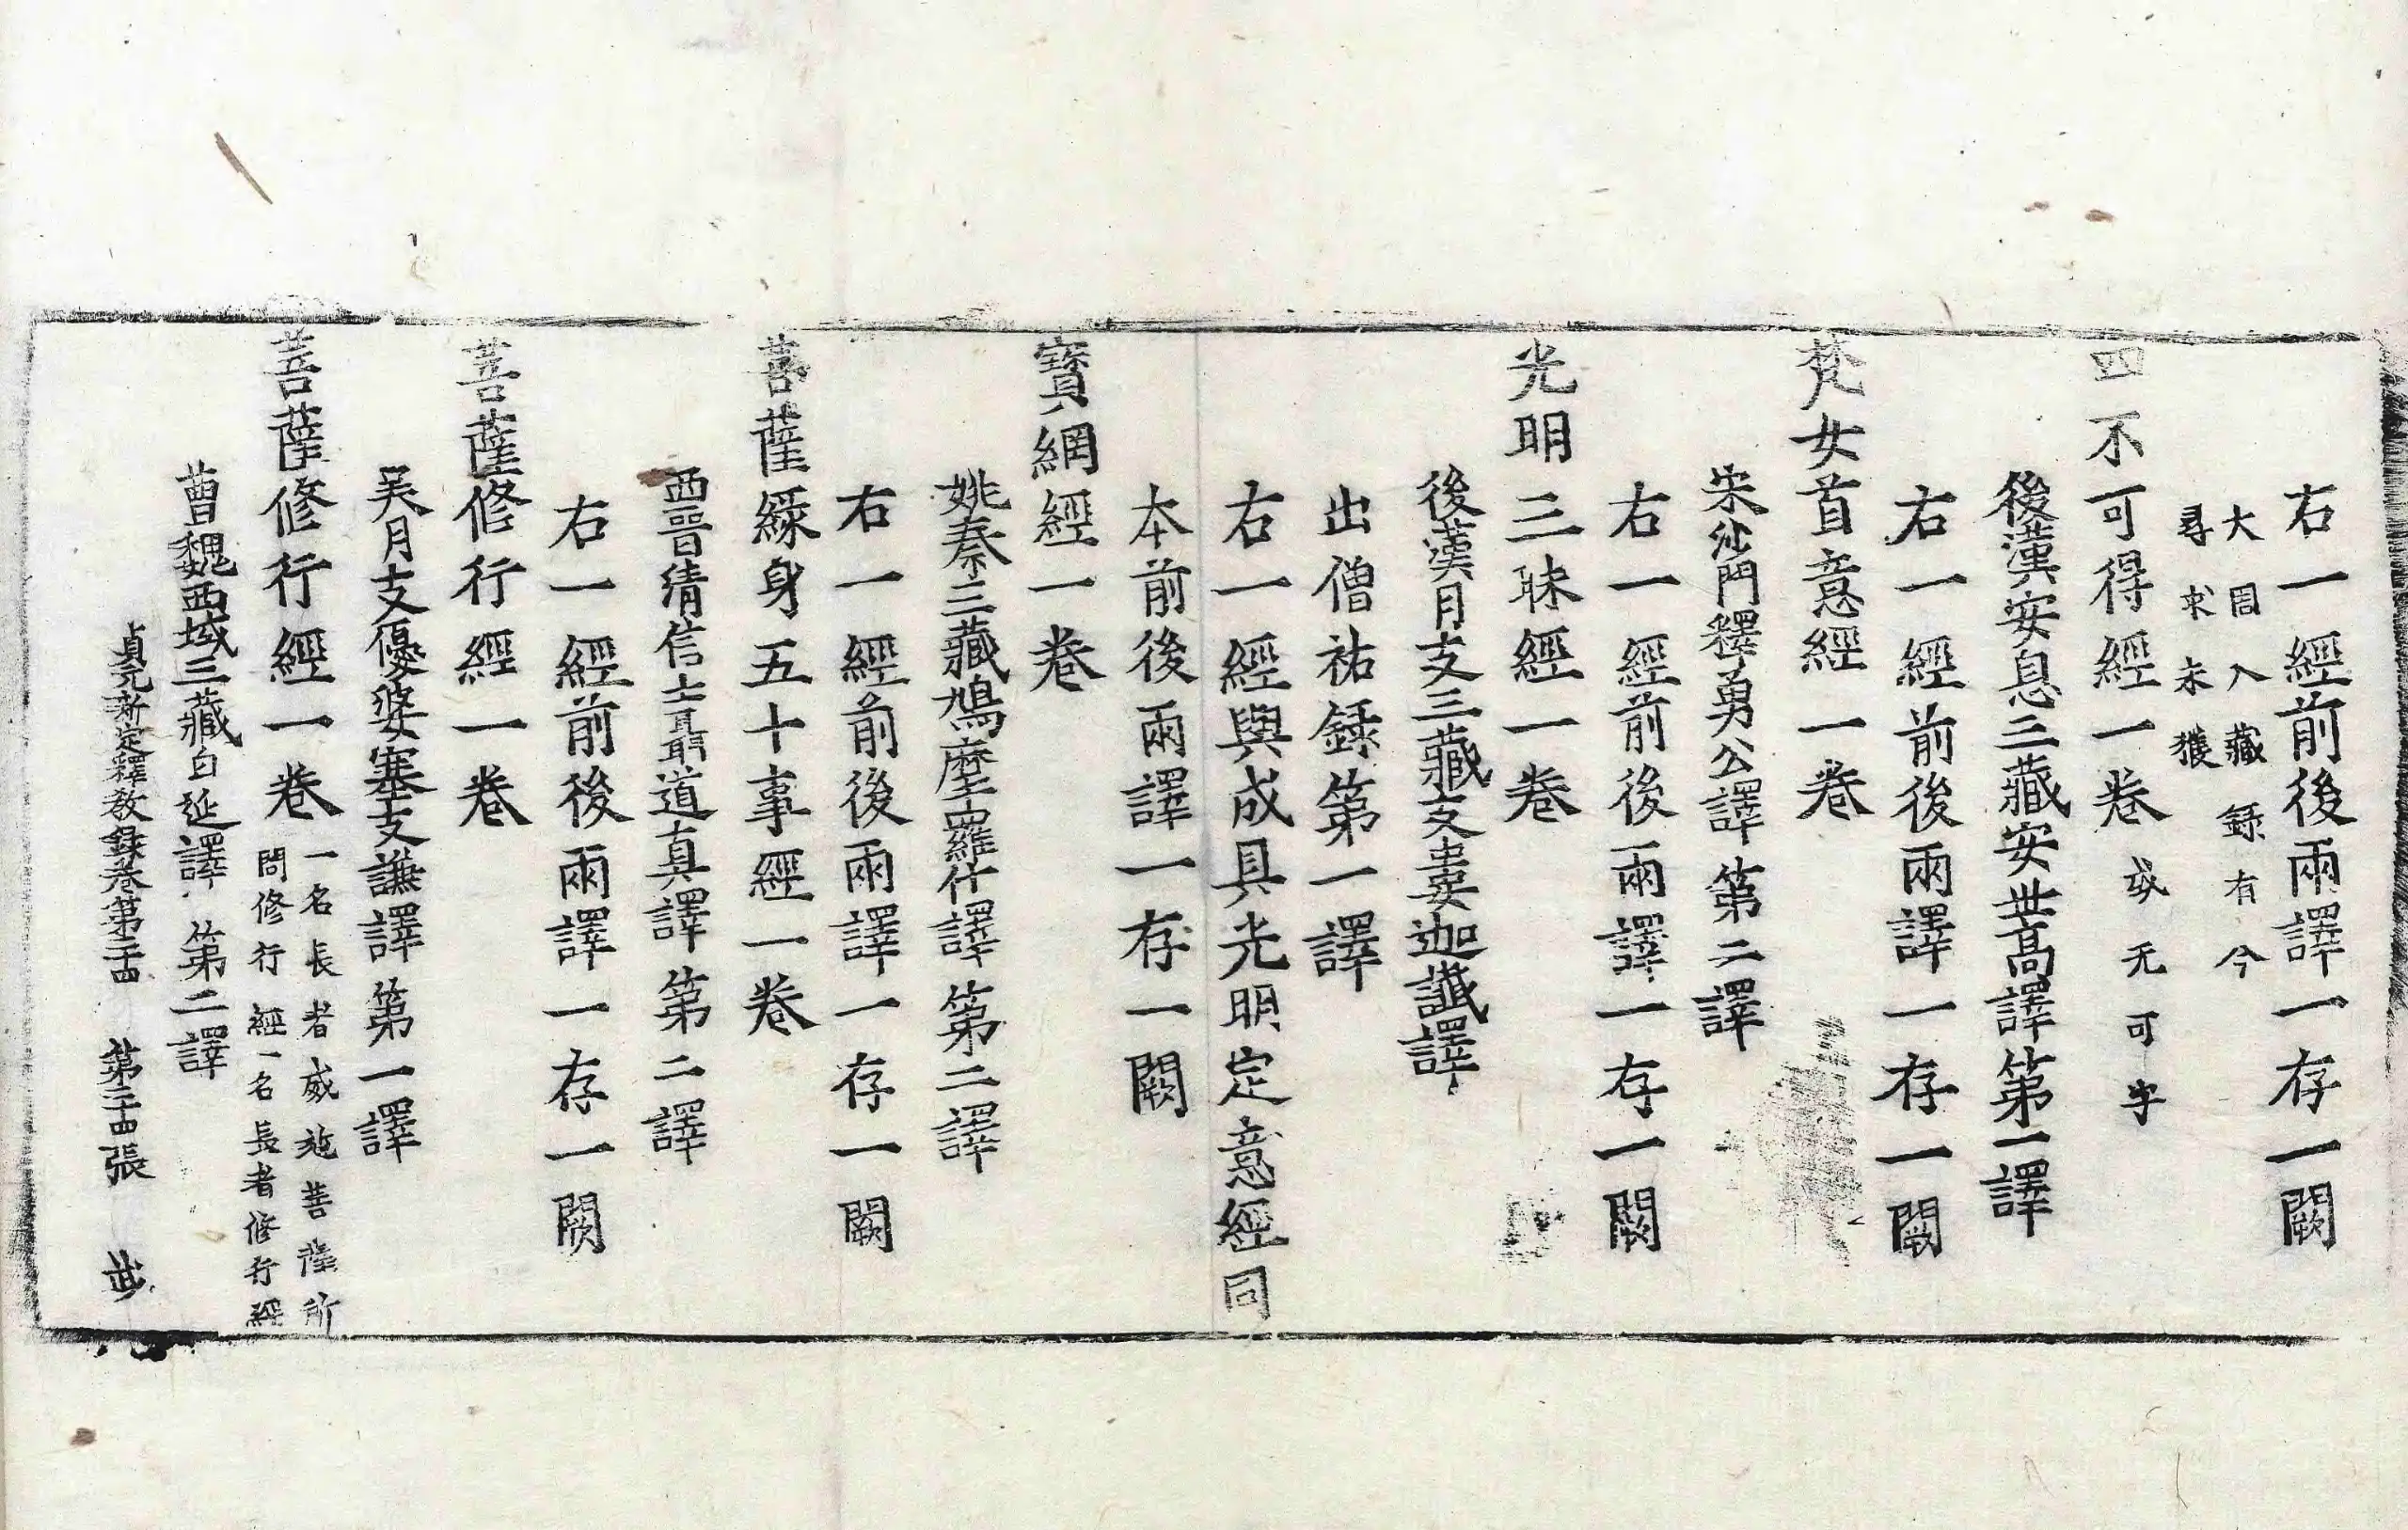 右一經前後兩譯一存一闕
大周入藏錄有今
尋求未獲
四不可得經一卷或无可字
後漢安息三藏安世高譯第一譯
右一經前後兩譯一存一闕
梵女首意經一卷
宋沙門釋勇公譯第二譯
右一經前後兩譯一存一闕
光明三昧經一卷
後漢月支三藏支婁迦讖譯
出僧祐錄第一譯
右一經與成具光明定意經同
本前後兩譯一存一闕
寶網經一卷
姚秦三藏鳩摩羅什譯第二譯
右一經前後兩譯一存一闕
菩薩緣身五十事經一卷
西晉清信士聶道真譯第二譯
右一經前後兩譯一存一闕
菩薩修行經一卷
吴月支優婆塞支謙譯第一譯
菩薩修行經一卷
一名長者威施菩薩所
問修行經一名長者修行經
曹魏西域三藏白延譯第二譯
貞元新定釋教錄卷第二十四 第二十四張